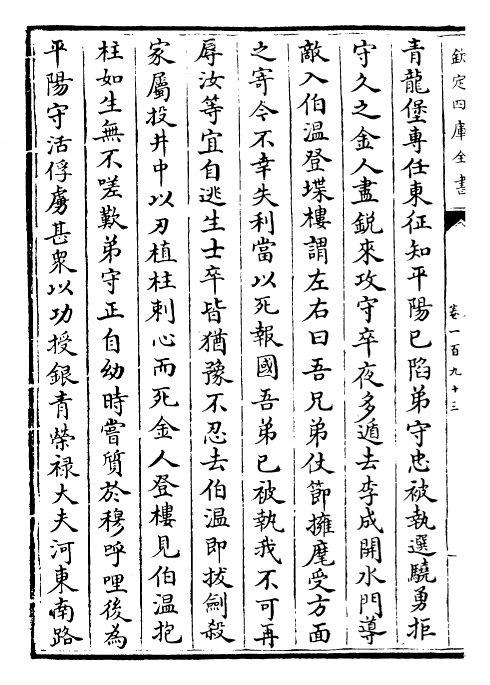 欽定四庫全書
卷一百九十三
青龍堡專任東征知平陽已陷弟守忠被執選驍勇拒
守久之金人盡鋭來攻守卒夜多遁去李成開水門導
敵入伯温登堞樓謂左右曰吾兄弟仗節擁麾受方面
之寄今不幸失利當以死報國吾弟已被執我不可再
辱汝等宜自逃生士卒皆猶豫不忍去伯温即拔劍殺
家屬投井中以刃植柱刺心而死金人登樓見伯温抱
柱如生無不嗟歎弟守正自幼時嘗質於穆呼哩後為
平陽守活俘虜甚衆以功授銀青榮禄大夫河東南路